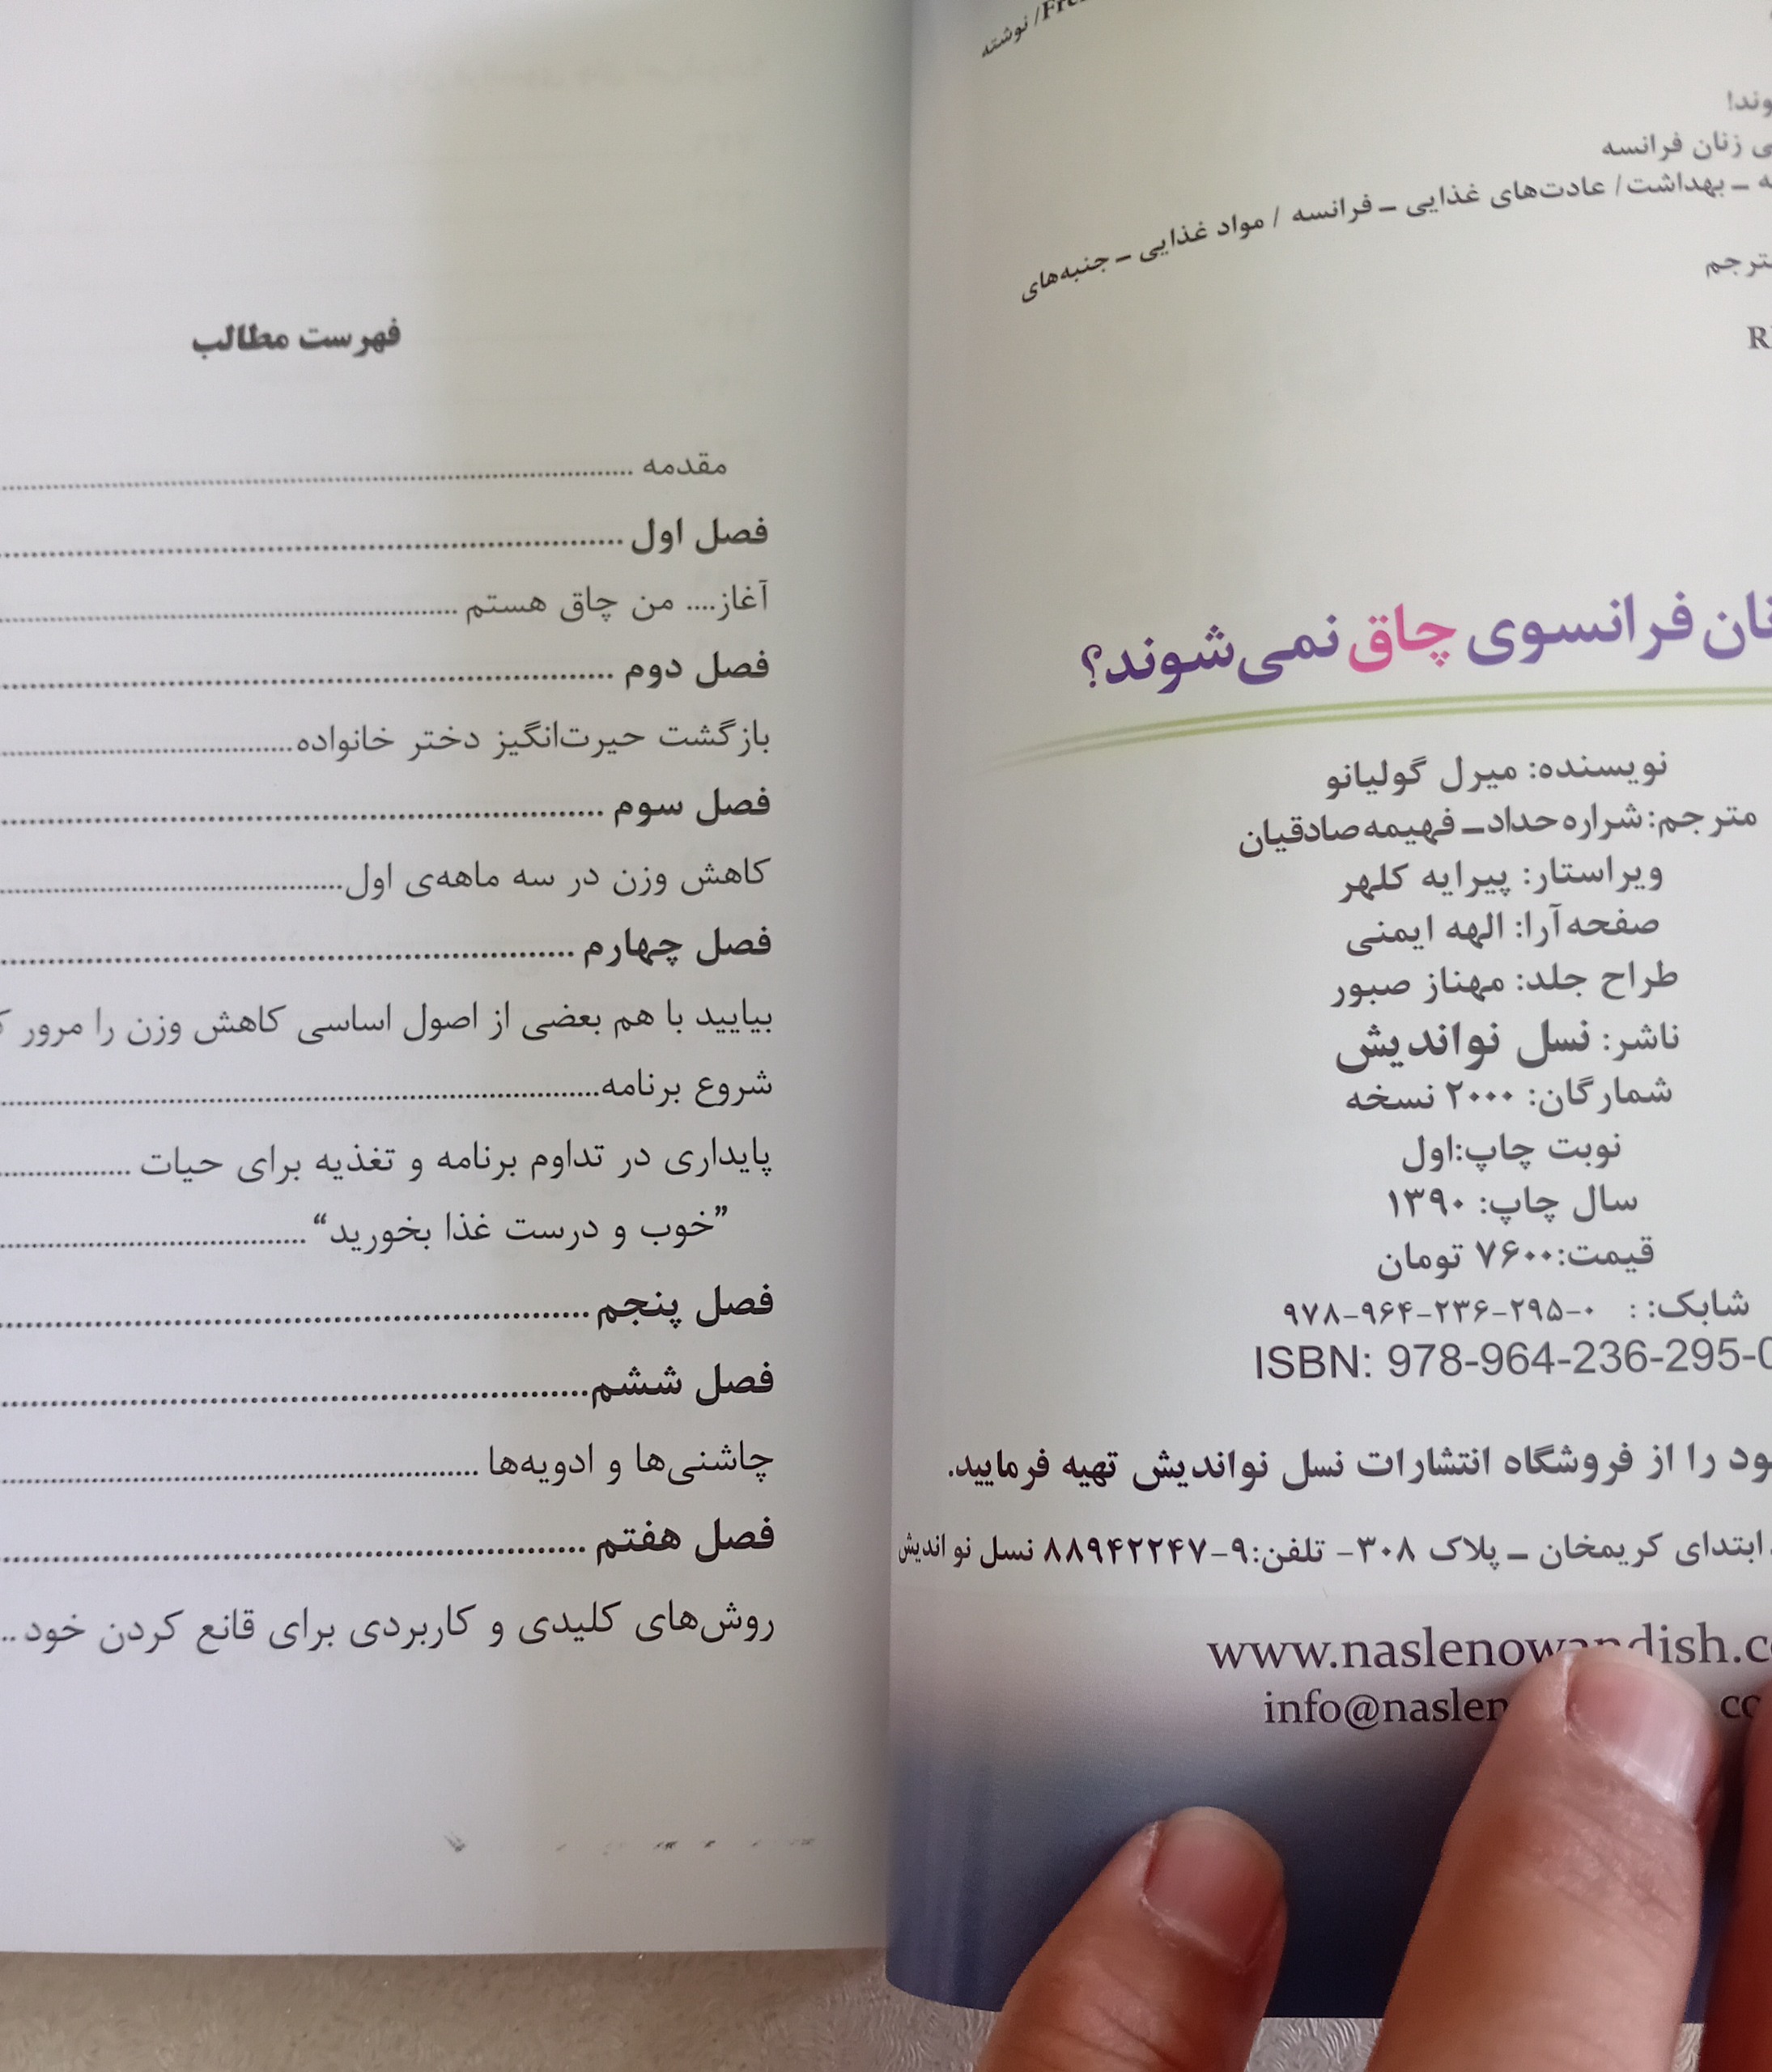 نوشته /
وند!
زنان فرانسه
ـ بهداشت/ عادت‌های غذایی ـ فرانسه / مواد غذایی ـ جنبه‌های
مترجم
فرانسوی چاق نمی‌شوند؟
نویسنده: میرل گولیانو
مترجم:شراره حداد ـ فهیمه صادقیان
ویراستار: پیرایه کلهر
صفحه‌آرا: الهه ایمنی
طراح جلد: مهناز صبور
ناشر: نسل نواندیش
شمارگان: ۲۰۰۰ نسخه
نوبت چاپ:اول
سال چاپ: ۱۳۹۰
قیمت:۷۶۰۰ تومان
شابک: : ۹۷۸-۹۶۴-۲۳۶-۲۹۵-۰
ISBN: 978-964-236-295-0
را از فروشگاه انتشارات نسل نواندیش تهیه فرمایید.
ابتدای کریمخان ـ پلاک ۳۰۸- تلفن:۹-۸۸۹۴۲۲۴۷ نسل نو اندیش
www.naslenowandish.co
info@naslen
فهرست مطالب
مقدمه
فصل اول
آغاز.... من چاق هستم
فصل دوم
بازگشت حیرت‌انگیز دختر خانواده
فصل سوم
کاهش وزن در سه ماهه‌ی اول
فصل چهارم
بیایید با هم بعضی از اصول اساسی کاهش وزن را مرور
شروع برنامه
پایداری در تداوم برنامه و تغذیه برای حیات
”خوب و درست غذا بخورید“
فصل پنجم
فصل ششم
چاشنی‌ها و ادویه‌ها
فصل هفتم
روش‌های کلیدی و کاربردی برای قانع کردن خود